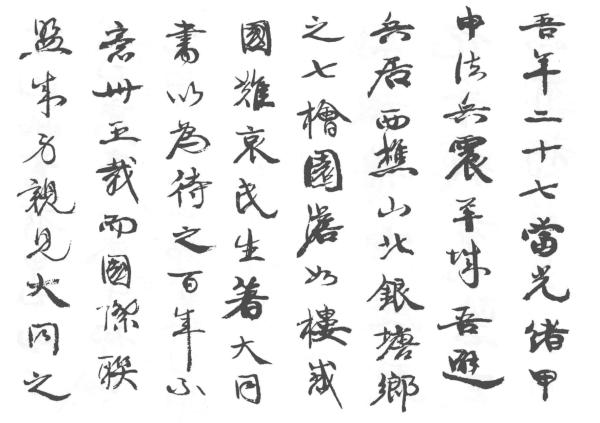 吾年二十七當光緒甲
申法兵震羊城吾避
兵居西樵山北銀塘鄉
之七檜園澹如樓感
國難哀民生著大同
書以為待之百年不
意卅五載而國際聯
盟成身親見大同之